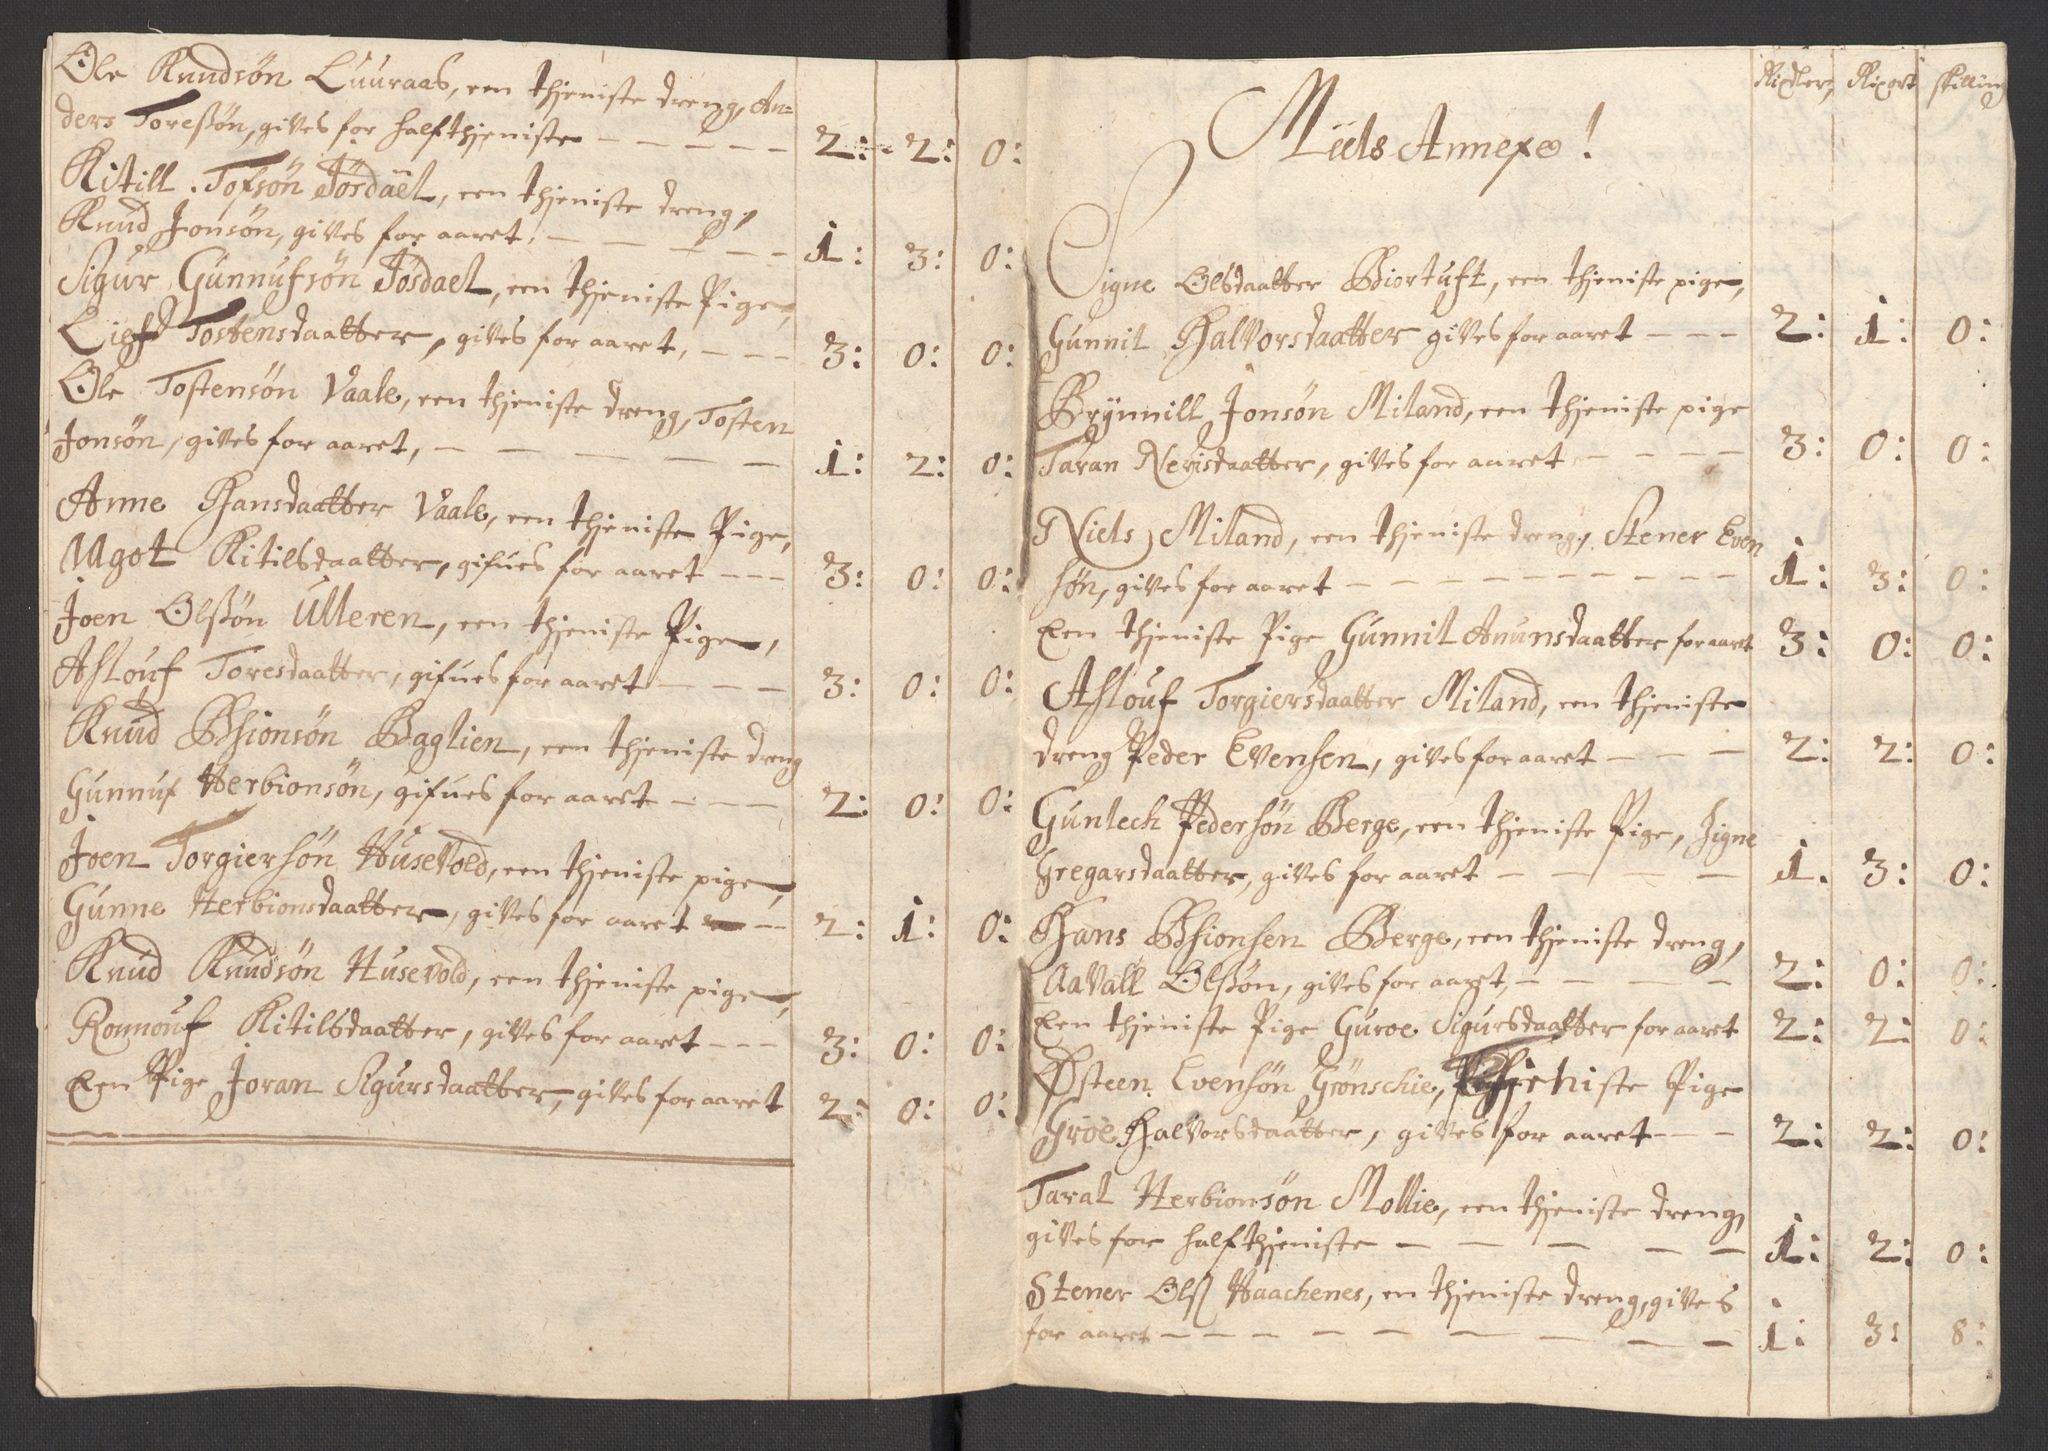 Ole Knudsøn Luuraas, een thjeniste dreng, An-
ders Toresßøn, gives for half thjeniste — — — — — 2: 2: 0:
Kitill Tofsøn Jösdaël, een thjeniste dreng,
Knud Jonsøn, gives for aaret, — — — — — 1: 3: 0:
Sigur Gunnufsøn Jösdaël, een thjeniste Pige,
Tostensdaatter, gives for aaret, — — — 3: 0: 0:
Ole Tostensøn Vaale, een thjeniste dreng, Tosten
Jonsøn, gives for aaret, — — — — — 1: 2: 0:
Anne Hansdaatter Vaale, een thjeniste Pige,
Mgot Kitilsdaatter, gifues for aaret — — — 3: 0: 0:
Joen Olsßøn Ulleren, een thjeniste Pige,
Aslouf Toresdaatter, gifues for aaret — — — 3: 0: 0:
Knud Bhionsøn Baglien, een thjeniste dreng
Gunnuf Herbionsøn, gifues for aaret — — — 2: 0: 0:
Joen Torgiersøn Husevold, een thjeniste pige,
Gunne Herbionsdaatter, gives for aaret — — 2: 1: 0:
Knud Knudsøn Husevold, een thjeniste pige,
Ronnouf Kitilsdaatter, gives for aaret — — — 3: 0: 0:
Een Pige Joran Sigursdaatter, gives for aaret 2: 0: 0:
Rixdler, Rixort skilling
Miels Annexe!
Signe Olsdaatter Biortuft, een thjeniste pige,
Gunnil Halvorsdaatter gives for aaret — — — 2: 1: 0:
Brynnill Jonsøn Miland, een thjeniste pige
Taran Nerisdaatter, gives for aaret — — — — 3: 0: 0:
Niels Miland, een thjeniste dreng, Stener Even
søn, gives for aaret — — — — — — — — — 1: 3: 0:
Een thjeniste Pige Gunnil Anunsdaatter for aaret 3: 0: 0:
Aslouf Torgiersdaatter Miland, een thjeniste
dreng Peder Evensen, gives for aaret — — — 2: 2: 0:
Gunlech Pedersøn Berge, een thjeniste Pige, Signe
Gregarsdaatter, gives for aaret — — — — 1. 3: 0:
Hans Bhionsen Berge, een thjeniste dreng,
Aavall Olsßøn, gives for aaret, — — — — 2: 0: 0:
Een thjeniste Pige Guroe Sigursdaatter for aaret 2: 2: 0:
Østeen Evensøn Grønschie, thjeniste Pige
Groe Halvorsdaatter, gives for aaret — — — 2: 2: 0:
Taral Herbionsøn Mollie, een thjeniste dreng,
gives for half thjeniste — — — — — 1: 2: 0:
Stener Olß Haachenes, en thjeniste dreng, gives
for aaret — — — — — — — — — 1: 3: 8: